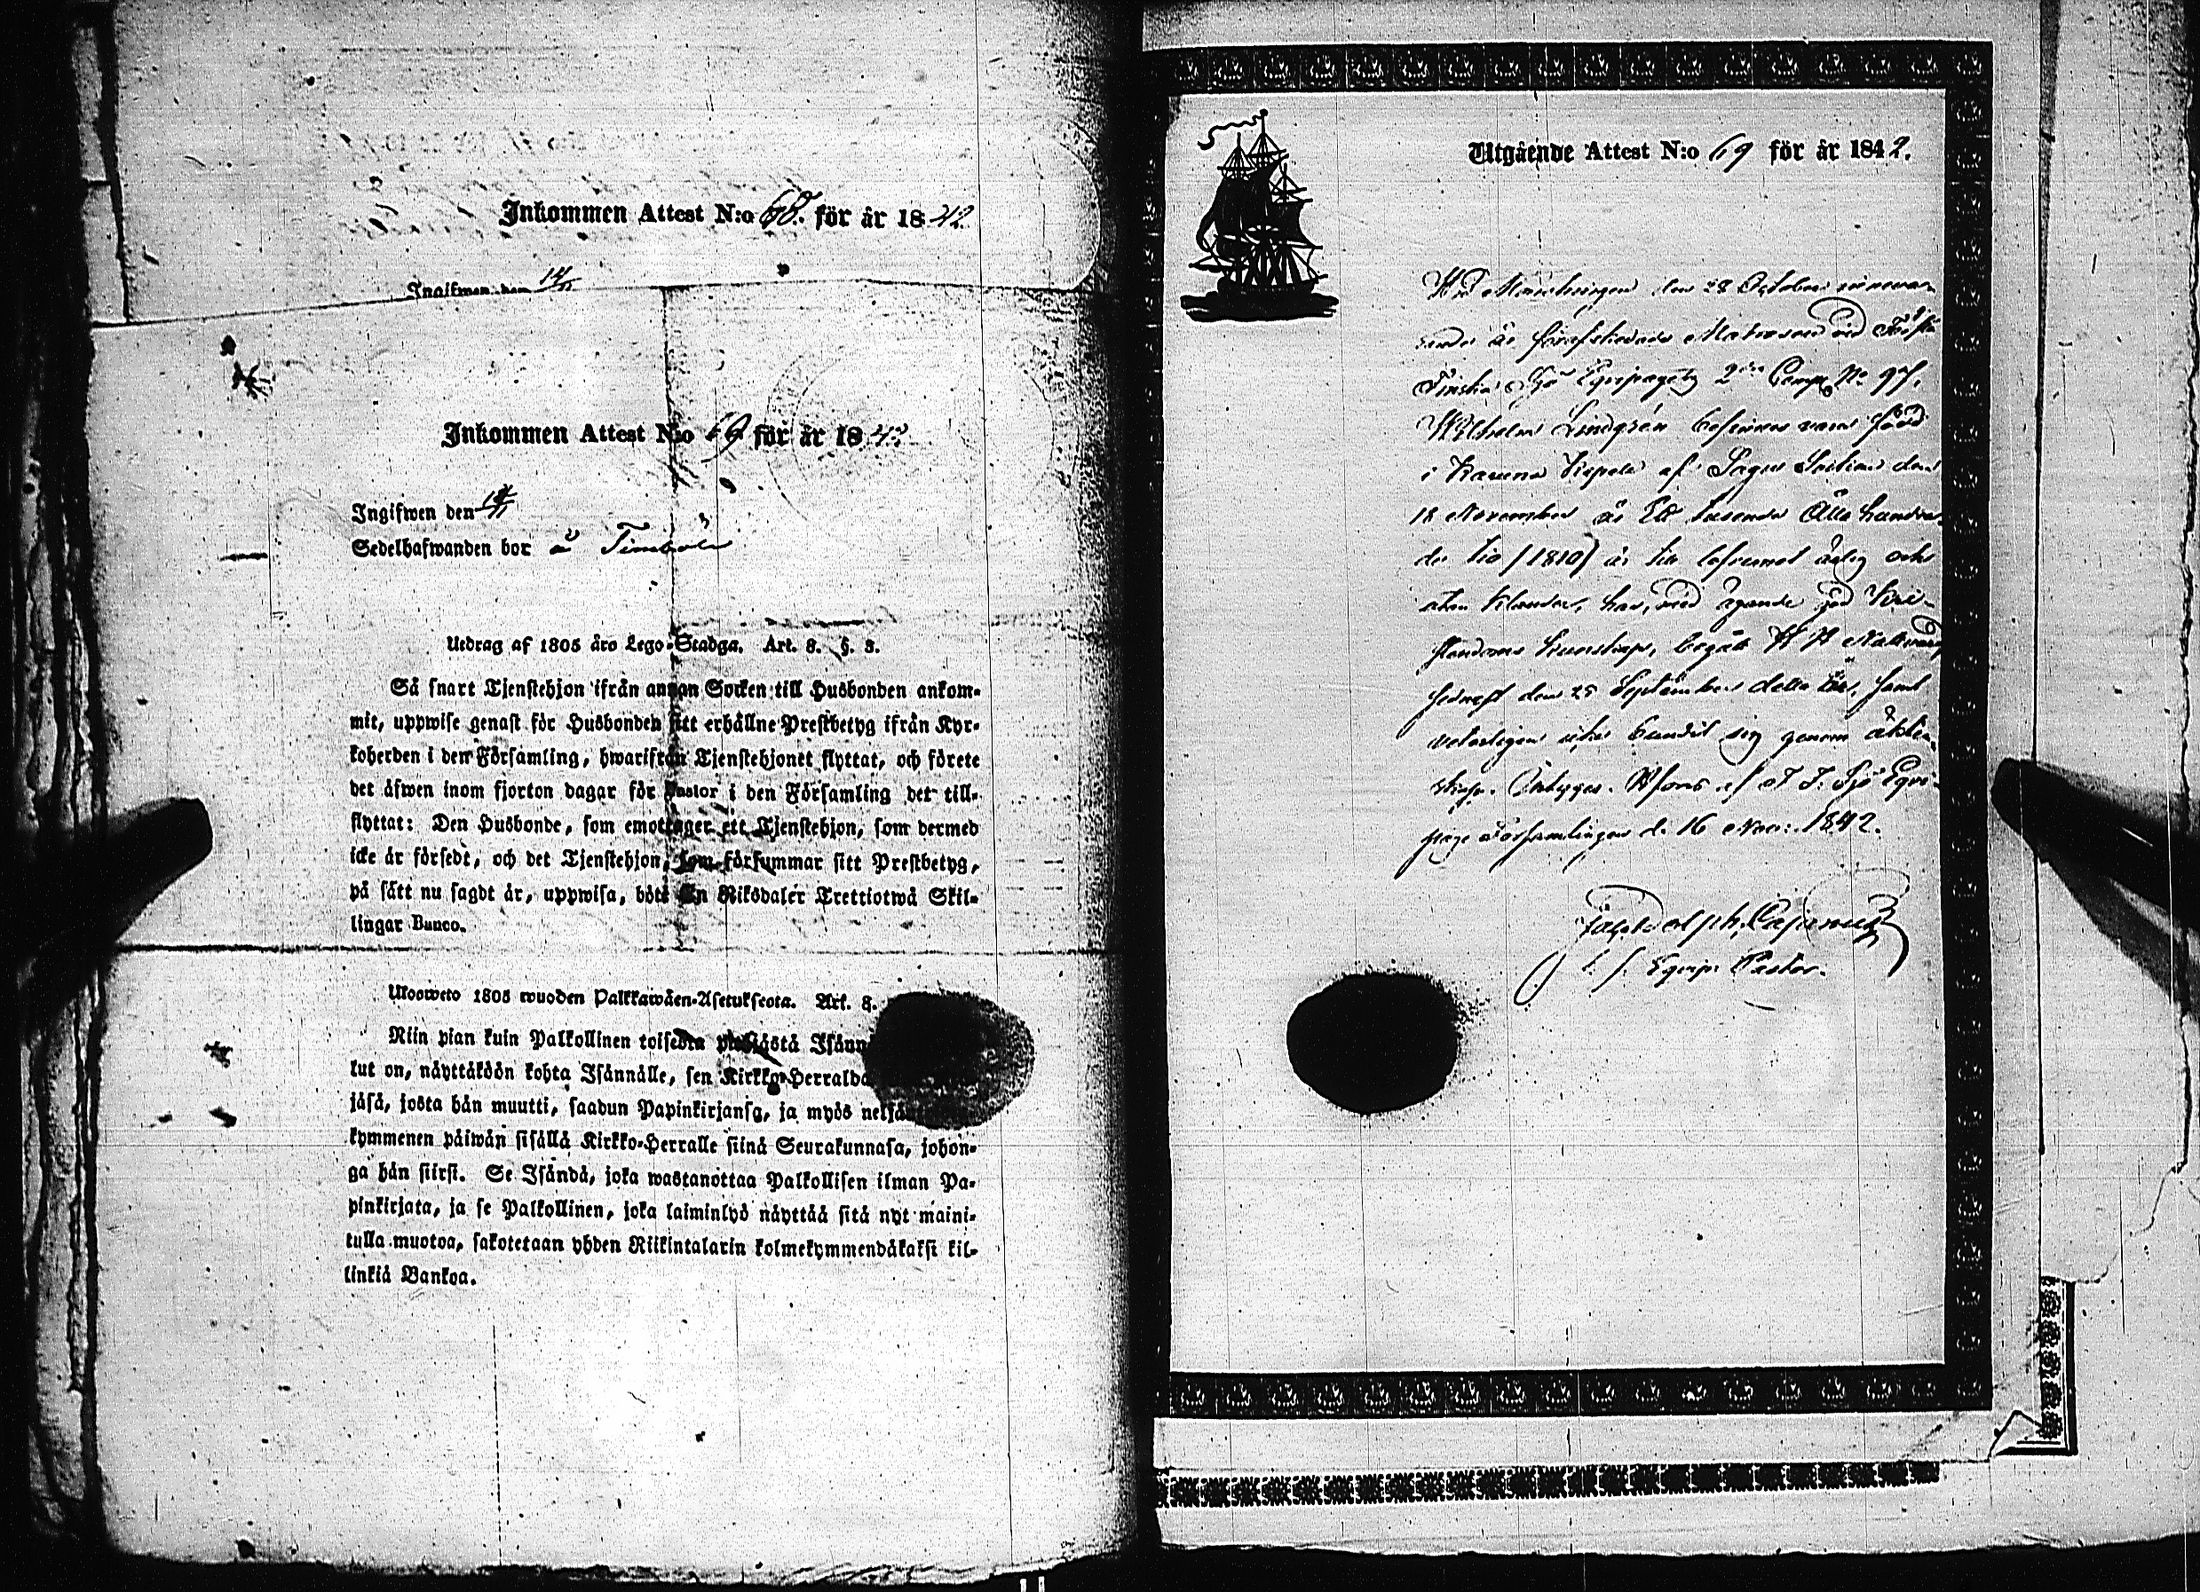 Inkommen Attest N:o 68. för år 1842.
Ingifwen den 14/11
Inkommen Attest N:o 69 för år 1842
Ingifwen den 18/11
Sedelhafwanden bor å
Utdrag af 1805 års Lego-Stadga. Art. 8. §. 3.
Så snart Tjenstehjon ifrån annan Socken till Husbonden ankom-
mit, uppwise genast för Husbonden sitt erhållne Prestbetyg ifrån Kyr-
koherden i den Församling, hwarifrån Tjenstehjonet flyttat, och förete
det äfwen inom fjorton dagar för Pastor i den Församling det till-
flyttat: Den Husbonde, som emottager ett Tjenstehjon, som dermed
icke är försedt, och det Tjenstehjon, som försummar sitt Prestbetyg,
på sätt nu sagdt är, uppwisa, böte En Riksdaler Trettiotwå Skil-
lingar Banco.
Ulosweto 1805 wuoden Palkkawäen-Asetuksesta. Art. 8.
Niin pian kuin Palkollinen toisesta pitäjästä
kut on, näyttäköön kohta Isännälle, sen Kirkko-Herralda
jäsä, josta hän muutti, saadun Papinkirjansa, ja myös
kymmenen päiwän sisällä Kirkko-Herralle siinä Seurakunnasa, johon-
ga hän siirsi. Se Isändä, joka wastanottaa Palkollisen ilman Pa-
pinkirjata, ja se Palkollinen, joka laiminlyö näyttää sitä nyt maini-
tulla muotoa, sakotetaan yhden Riikintalarin kolmekymmendäkaksi kil-
linkiä Bankoa.
Utgående Attest N:o 69 för år 1842.
Wid Mönstringen den 28 October innewa-
rande år förafskedade Matrosen wid Första
Finska Sjö Equipagets 2dra Comp. No 97,
Wilhelm Lindgrén befinnes vara född
i Karuna af Sagu Socken den
18 November år Ett tusende Åtta hundra-
de tio (1810) är till lefvernet ärlig och
utan klander, har, med ägande god Kri-
stendoms kunskap, begått H. H. Nattward
sednast den 25 September detta år, samt
veterligen icke bundit sig genom äkten-
skap. Helsingfors af F. F. Sjö Equi-
page Församlingen d. 16 Nov: 1842.
Cajanus
Equip. Pastor.